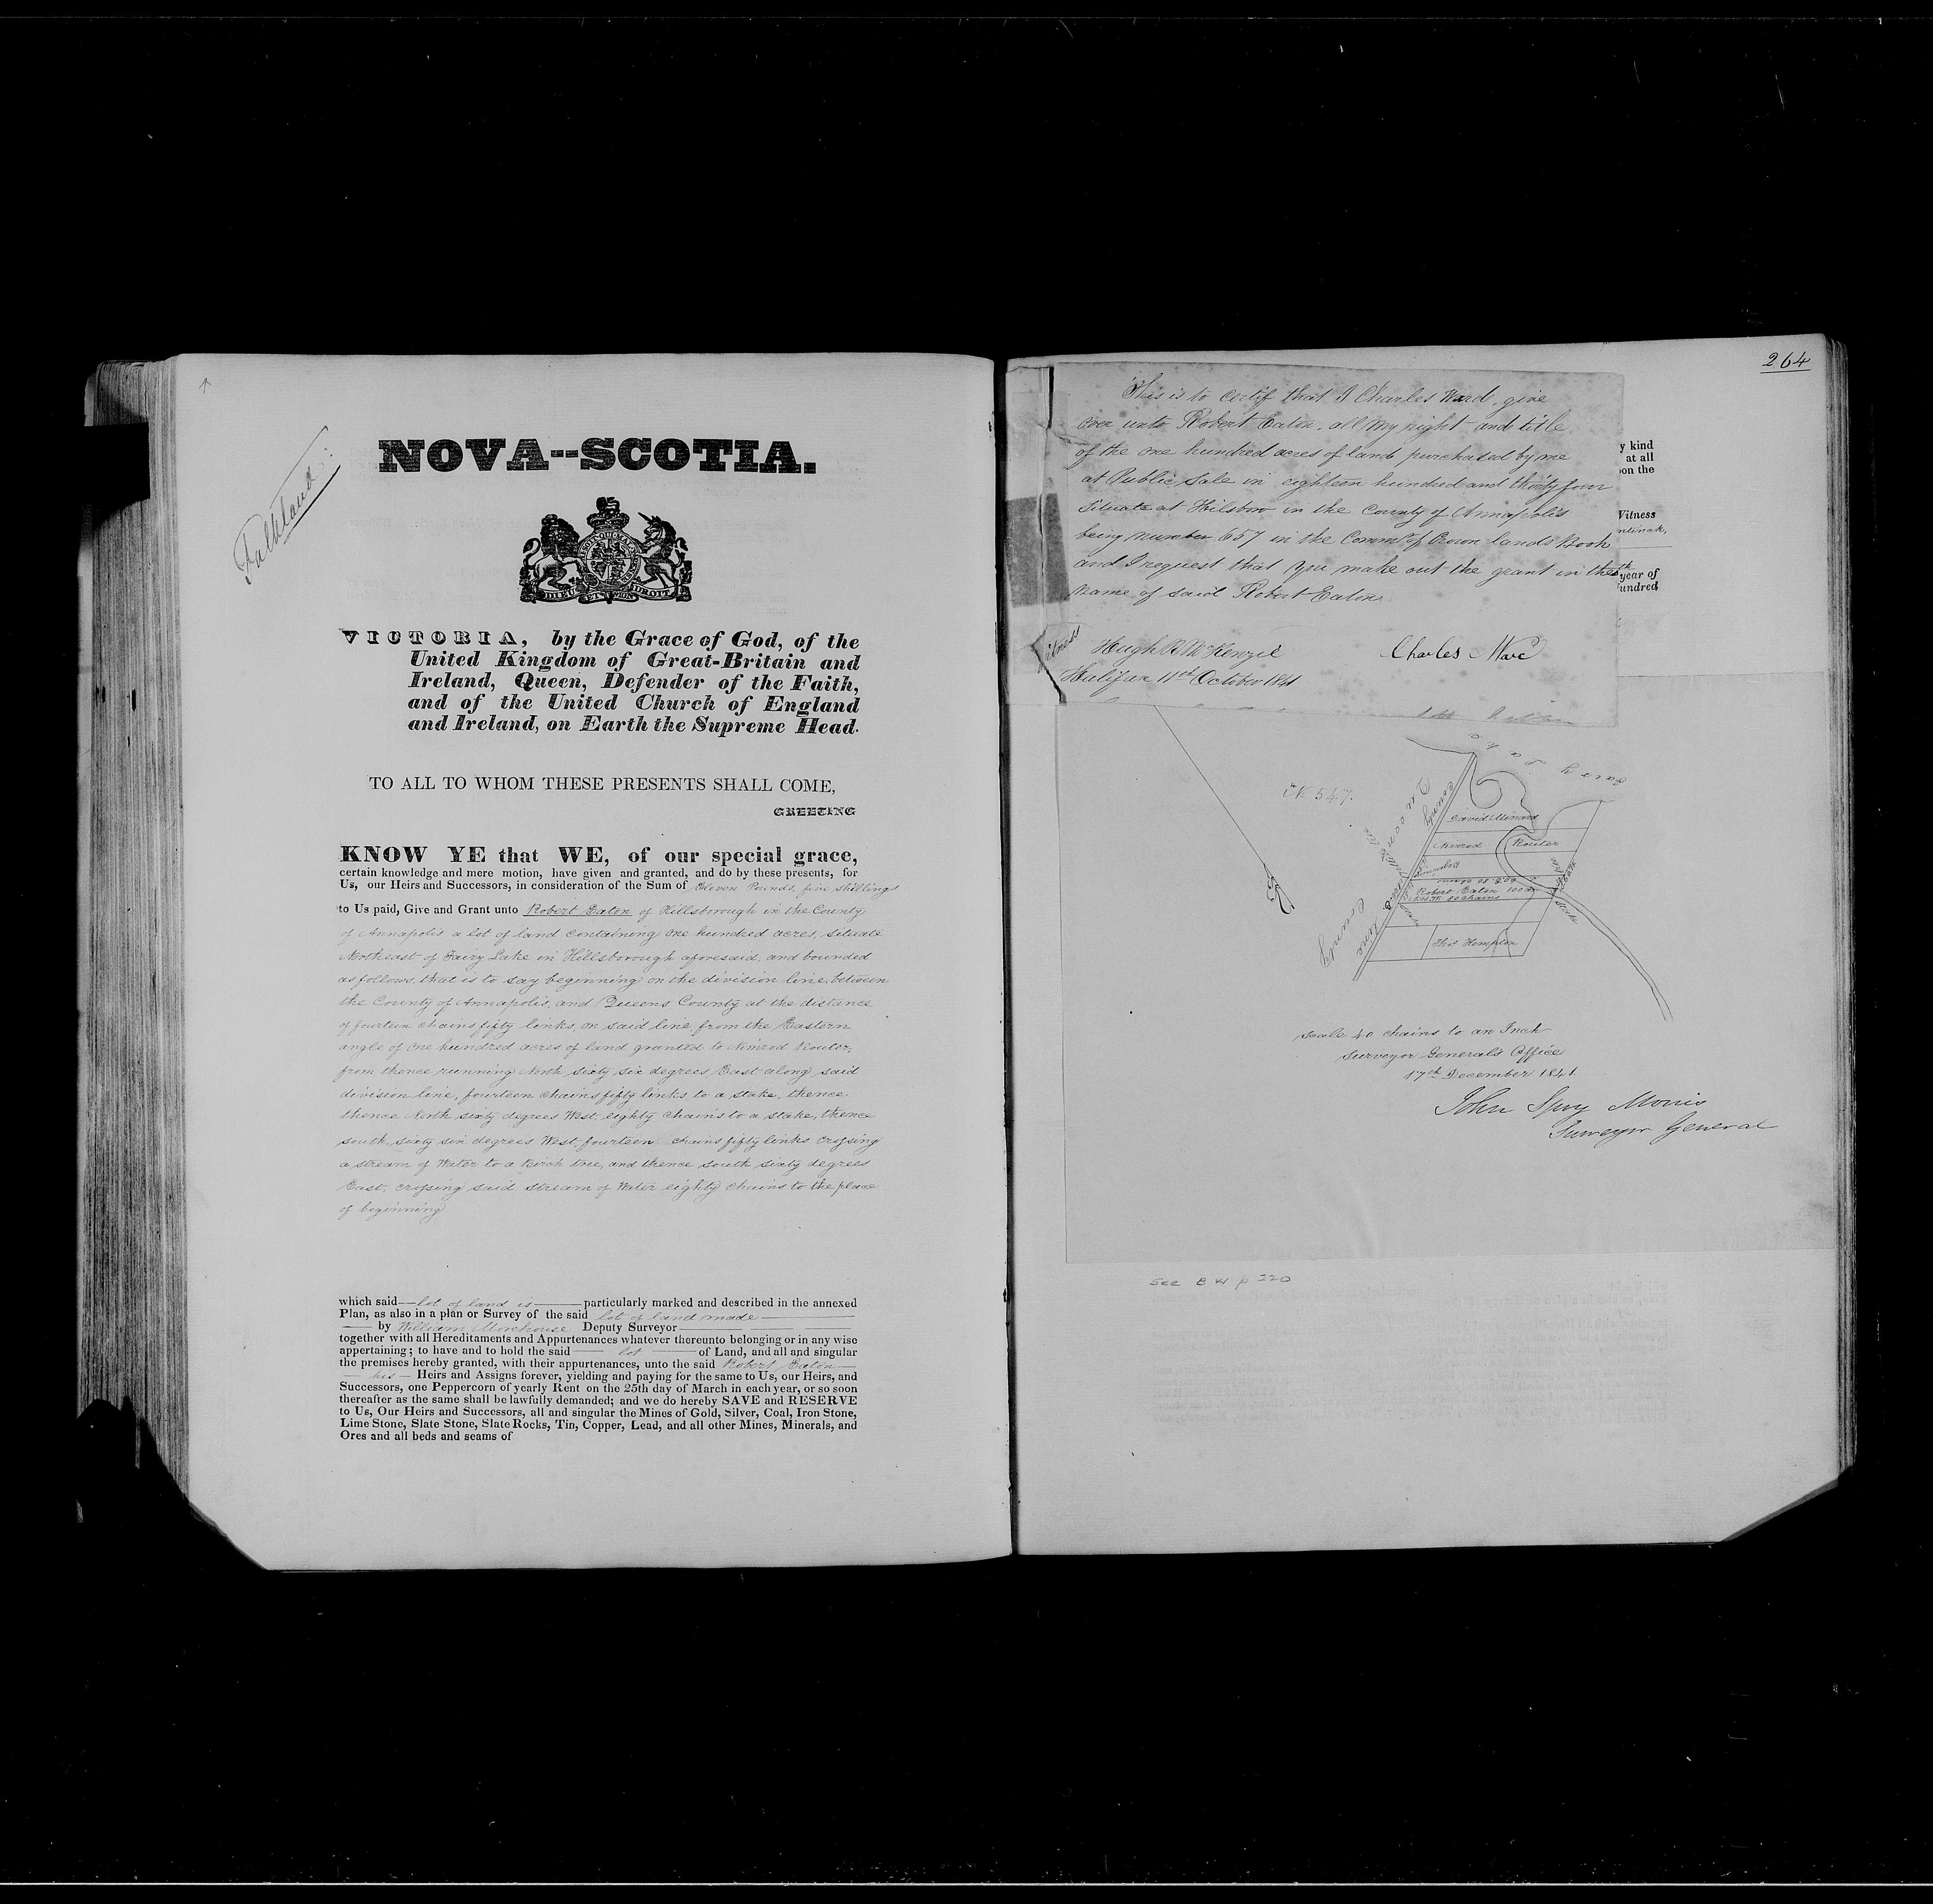 Falkland
NOVA--SCOTIA.
DIEU ET MON DROIT
VICTORIA, by the Grace of God, of the
United Kingdom of Great-Britain and
Ireland, Queen, Defender of the Faith,
and of the United Church of England
and Ireland, on Earth the Supreme Head.
TO ALL TO WHOM THESE PRESENTS SHALL COME,
GREETING
KNOW YE that WE, of our special grace,
certain knowledge and mere motion, have given and granted, and do by these presents, for
Us, our Heirs and Successors, in consideration of the Sum of Eleven Pounds, five shillings
to Us paid, Give and Grant unto Robert Eaton of Hillsborough in the County
of Annapolis a lot of land containing one hundred acres, situate
Northeast of Fairy Lake in Hillsborough aforesaid, and bounded
as follows, that is to say beginning on the division line between
the County of Annapolis, and Queens County at the distance
of fourteen chains fifty links, on said line from the Eastern
angle of one hundred acres of land granted to Nimrod Router,
from thence running North sixty six degrees East along said
division line, fourteen chains fifty links, to a stake, thence
thence North sixty degrees West, eighty chains to a stake, thence
south, sixty six degrees West, fourteen chains fifty links crossing
a stream of Water to a Birch tree, and thence south sixty degrees
East, crossing said stream of Water eighty chains to the place
of beginning
which said lot of land is particularly marked and described in the annexed
Plan, as also in a plan or Survey of the said lot of land made
by William Morehouse Deputy Surveyor
together with all Hereditaments and Appurtenances whatever thereunto belonging or in any wise
appertaining; to have and to hold the said lot of Land, and all and singular
the premises hereby granted, with their appurtenances, unto the said Robert Eaton
his Heirs and Assigns forever, yielding and paying for the same to Us, our Heirs, and
Successors, one Peppercorn of yearly Rent on the 25th day of March in each year, or so soon
thereafter as the same shall be lawfully demanded; and we do hereby SAVE and RESERVE
to Us, Our Heirs and Successors, all and singular the Mines of Gold, Silver, Coal, Iron Stone,
Lime Stone, Slate Stone, Slate Rocks, Tin, Copper, Lead, and all other Mines, Minerals, and
Ores and all beds and seams of
264
This is to certif that I Charles Ward, give
over unto Robert Eaton, all my right and title
of the one hundred acres of land purchased by me
at Public Sale in eighteen hundred and thirty four
Situate at Hilsboro in the County of Annapolis
being number 657 in the Commr of Crown lands Book
and I request that you make out the grant in the
name of said Robert Eaton
Witness
Hugh B McKenzie
Charles Ward
Halifax 11th October 1841
y kind
at all
on the
Witness
year of
undred
No 547.
Fairy Lake
Queens County
County Line
David Minard
Nimrod Router
Robert Eaton 100 a
Stake
Thos Hempton
Scale 40 chains to an Inch
Surveyor General's Office
17th December 1841
John Spry Morris
Surveyor General
See B W p 220